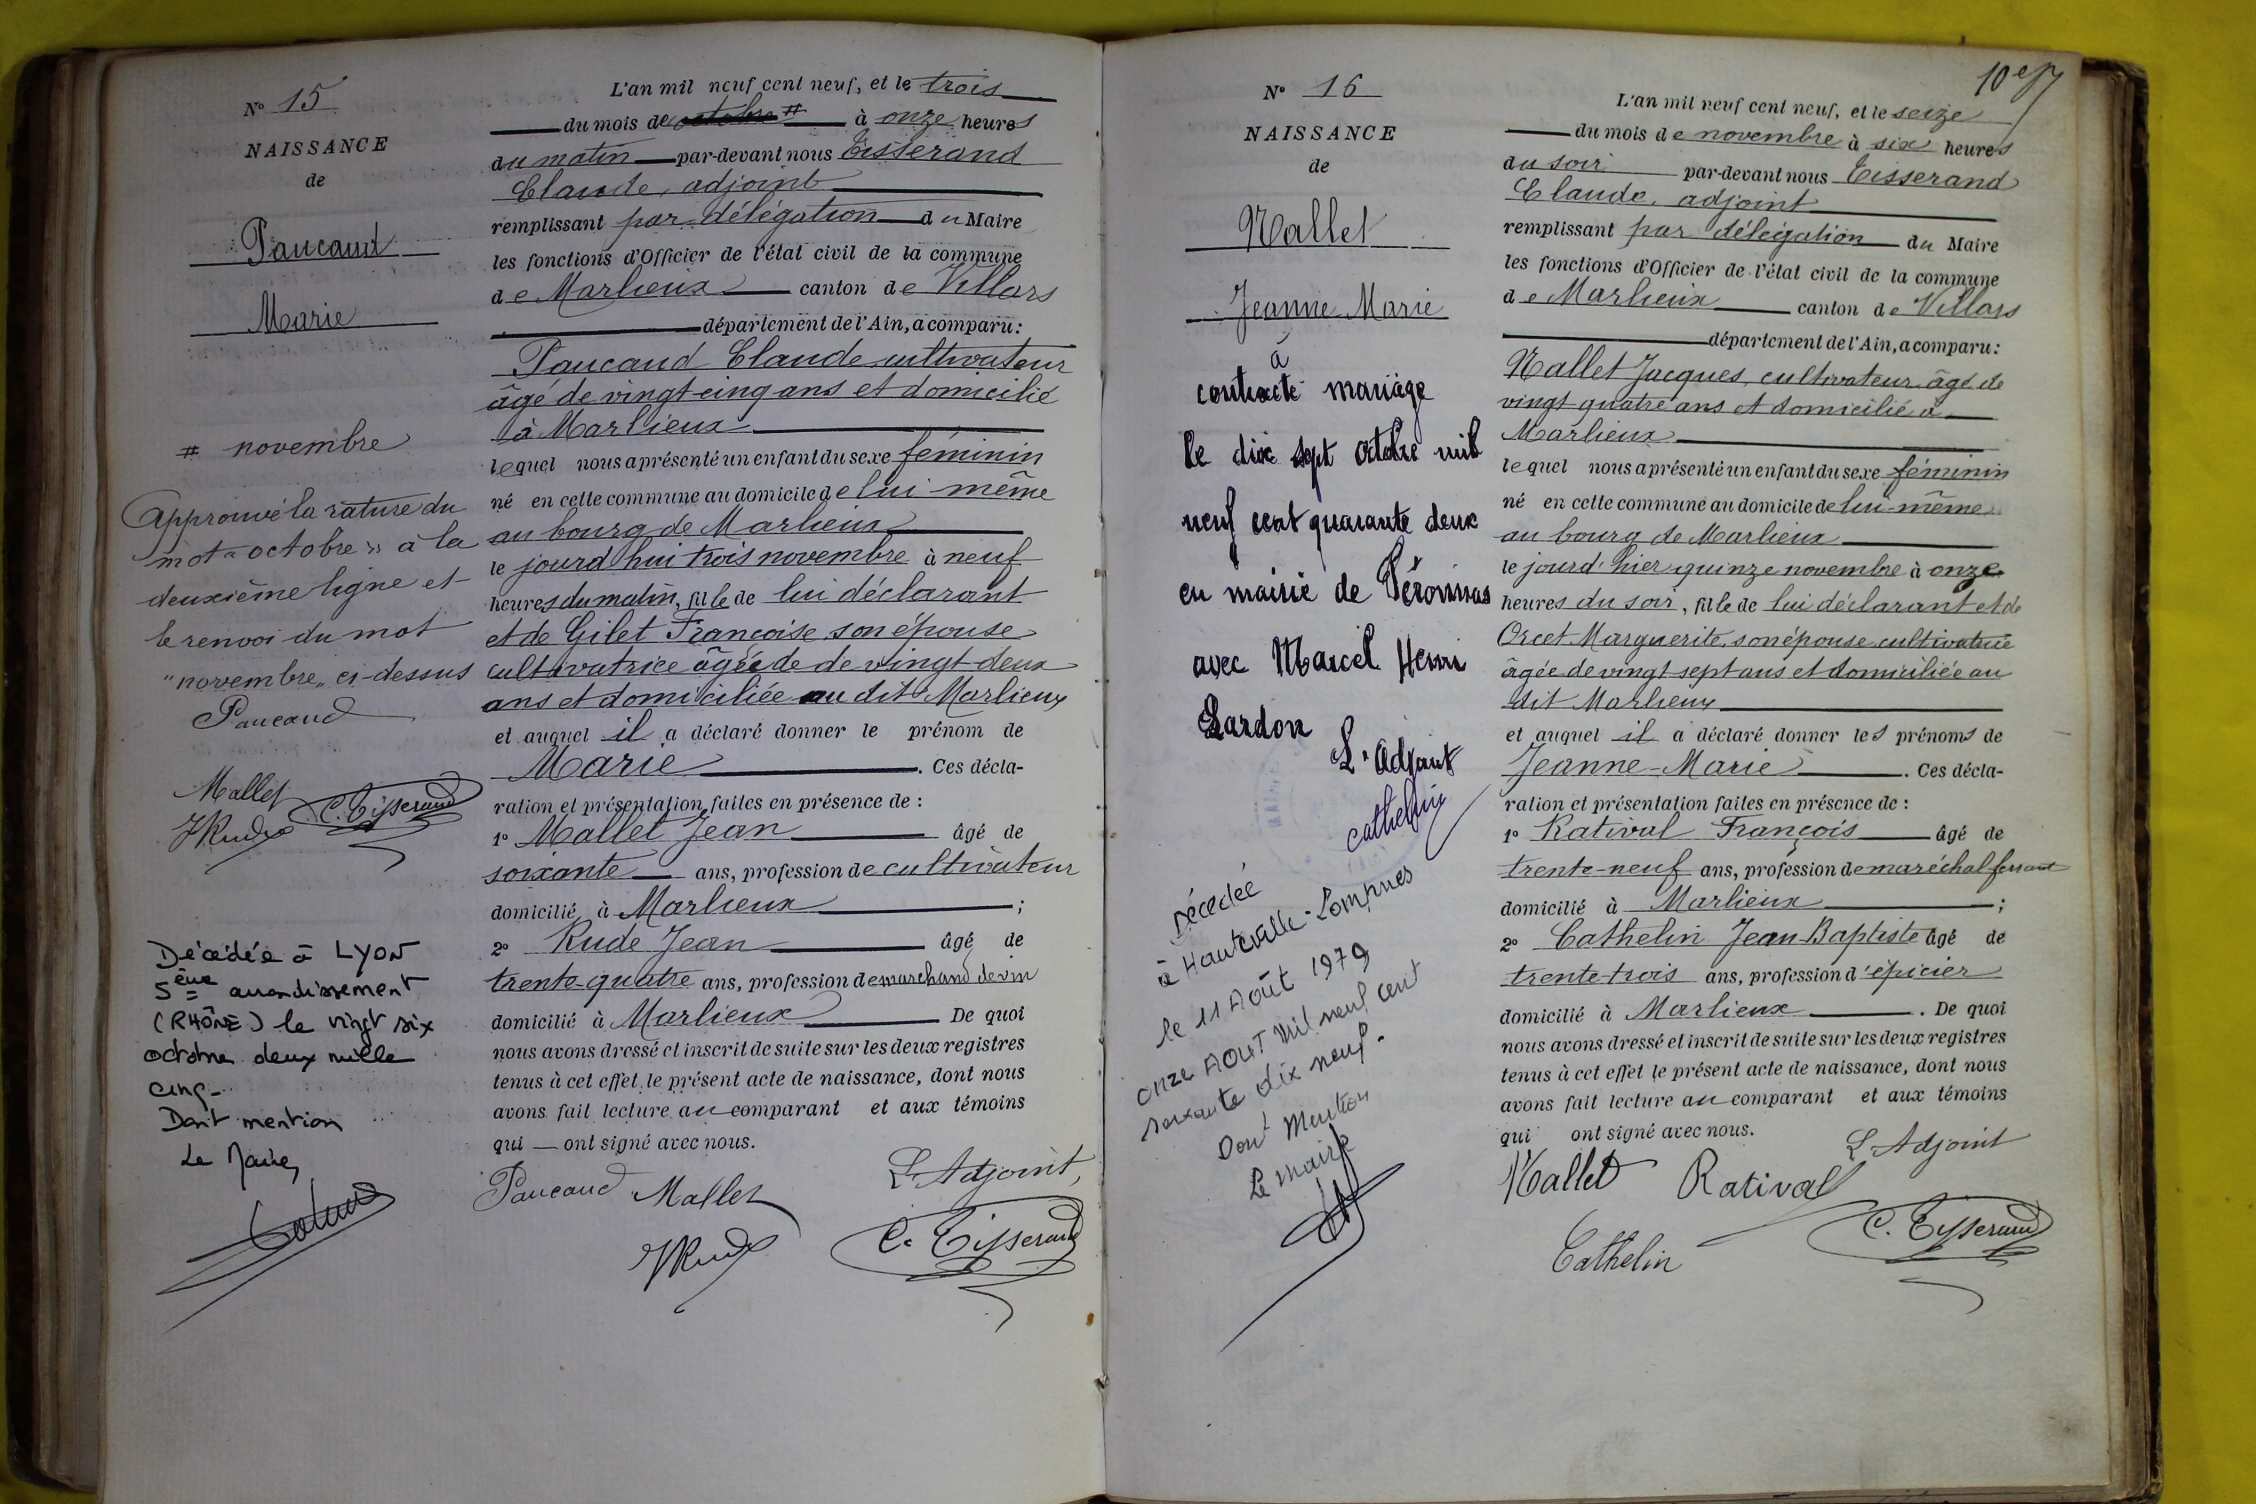 N° 15
NAISSANCE
de
Paucaud
Marie
# novembre
Approuvé la rature du
mot "octobre" à la
deuxième ligne et
le renvoi du mot
"novembre" ci-dessus
Paucaud
Mallet
C. Tisserand
JRude
Décédée à LYON
5ème arrondissement
(RHÔNE) le vingt six
octobre deux mille
cinq.
Dont mention
Le Maire,
L'an mil neuf cent neuf, et le trois
du mois de octobre # à onze heures
du matin par-devant nous Tisserand
Claude, adjoint
remplissant par délégation du Maire
les fonctions d'Officier de l'état civil de la commune
de Marlieux canton de Villars
département de l'Ain, a comparu:
Paucaud Claude cultivateur
âgé de vingt-cinq ans et domicilié
à Marlieux
lequel nous a présenté un enfant du sexe féminin
né en cette commune au domicile de lui-même
au bourg de Marlieux
le jourd'hui trois novembre à neuf
heures du matin, fille de lui déclarant
et de Gilet Françoise son épouse
cultivatrice âgée de de vingt-deux
ans et domiciliée au dit Marlieux
et auquel il a déclaré donner le prénom de
Marie. Ces décla-
ration et présentation faites en présence de :
1° Mallet Jean âgé de
soixante ans, profession de cultivateur
domicilié à Marlieux ;
2° Rude Jean âgé de
trente-quatre ans, profession de marchand de vin
domicilié à Marlieux De quoi
nous avons dressé et inscrit de suite sur les deux registres
tenus à cet effet le présent acte de naissance, dont nous
avons fait lecture au comparant et aux témoins
qui — ont signé avec nous.
L'Adjoint,
Paucaud Mallet
JRude C. Tisserand
10e
N° 16
NAISSANCE
de
Mallet
Jeanne Marie
à
contracté mariage
le dix sept octobre mil
neuf cent quarante deux
en mairie de Péronnas
avec Marcel Henri
Lardon
L'Adjoint
Cathelin
Décédée
à Hauteville-Lompnes
le 11 Août 1979
onze AOUT mil neuf cent
soixante dix neuf.
Dont Mention
Le Maire
L'an mil neuf cent neuf, et le seize
du mois de novembre à six heures
du soir par-devant nous Tisserand
Claude, adjoint
remplissant par délégation du Maire
les fonctions d'Officier de l'état civil de la commune
de Marlieux canton de Villars
département de l'Ain, a comparu:
Mallet Jacques, cultivateur âgé de
vingt quatre ans et domicilié à
Marlieux
lequel nous a présenté un enfant du sexe féminin
né en cette commune au domicile de lui-même
au bourg de Marlieux
le jourd'hier quinze novembre à onze
heures du soir, fille de lui déclarant et de
Orcet Marguerite, son épouse cultivatrice
âgée de vingt sept ans et domiciliée au
dit Marlieux
et auquel il a déclaré donner les prénoms de
Jeanne-Marie. Ces décla-
ration et présentation faites en présence de :
1° Ratival François âgé de
trente-neuf ans, profession de maréchal ferrant
domicilié à Marlieux ;
2° Cathelin Jean-Baptiste âgé de
trente-trois ans, profession d'épicier
domicilié à Marlieux. De quoi
nous avons dressé et inscrit de suite sur les deux registres
tenus à cet effet le présent acte de naissance, dont nous
avons fait lecture au comparant et aux témoins
qui ont signé avec nous.
L'Adjoint
Mallet Ratival
Cathelin C. Tisserand